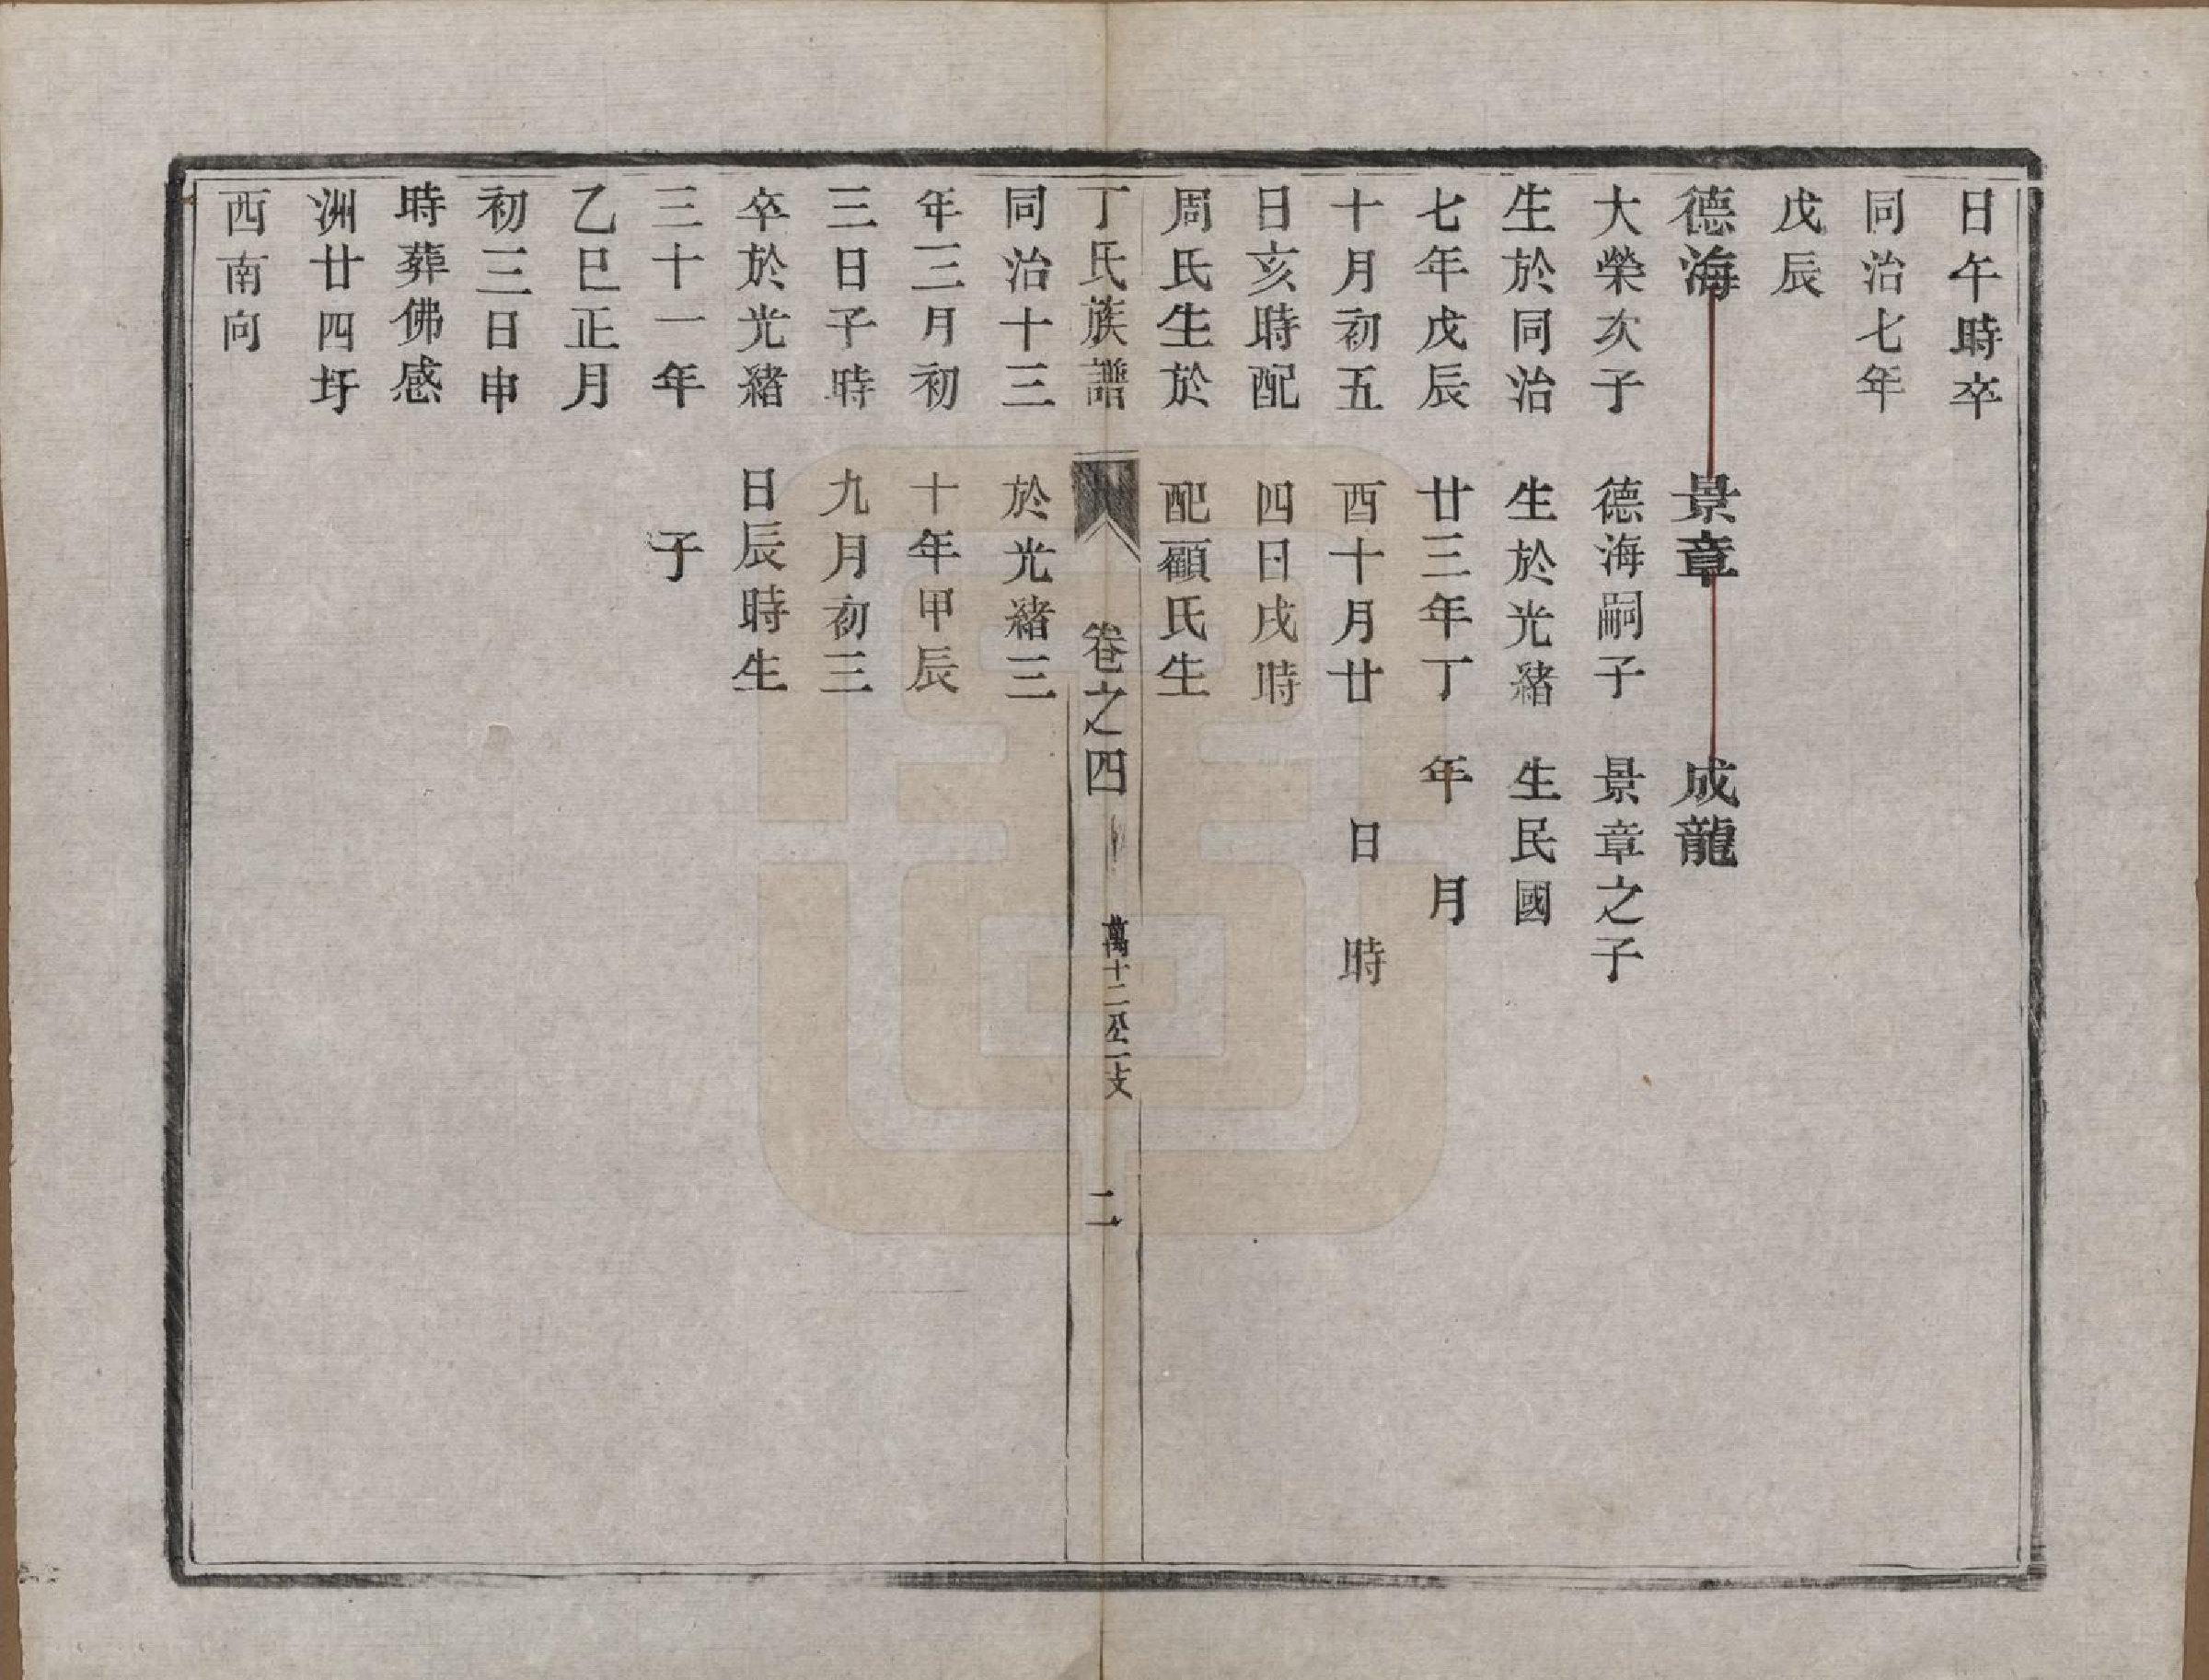 日午時卒
同治七年
戊辰
德海
大榮次子
生於同治
七年戊辰
十月初五
日亥時配
周氏生於
同治十三
年三月初
三日子時
卒於光緒
三十一年
乙巳正月
初三日申
時葬佛感
洲廿四圩
西南向
景章
德海嗣子
生於光緒
廿三年丁
酉十月廿
四日戌時
配顧氏生
於光緒三
十年甲辰
九月初三
日辰時生
子
成龍
景章之子
生民國
年 月
日 時
丁氏族譜 卷之四 萬十二公二支 二